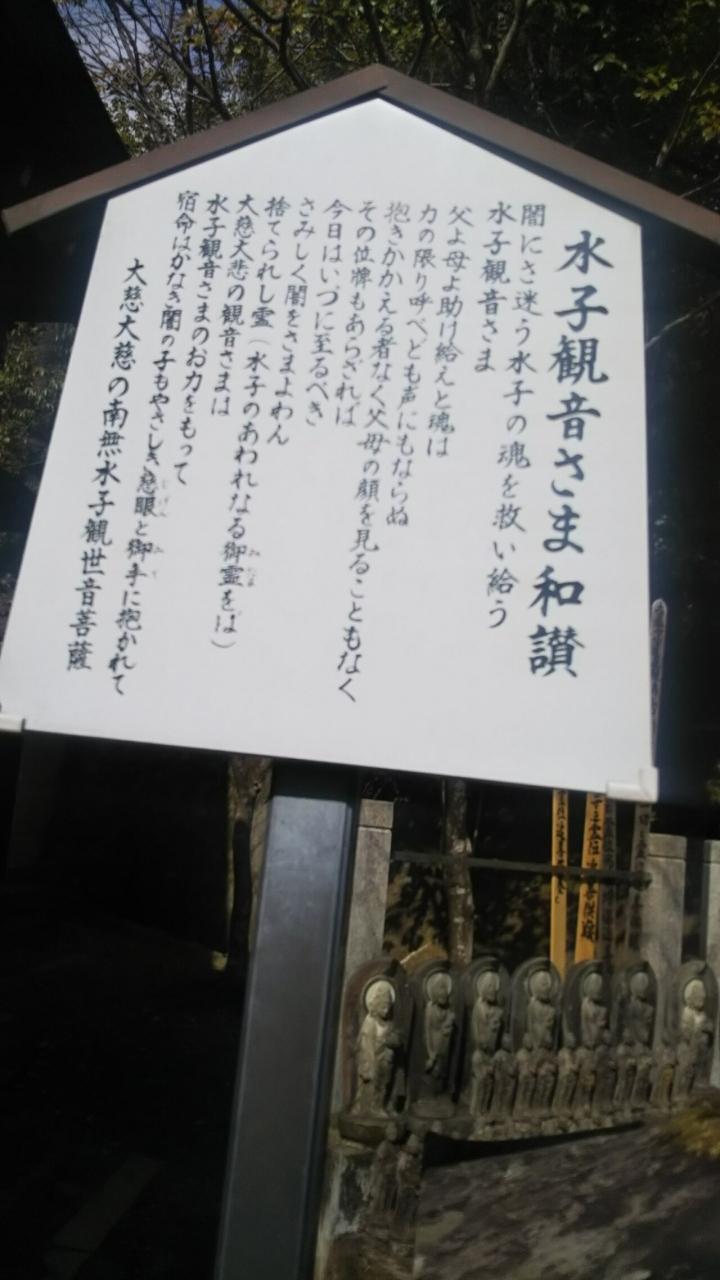 水子観音さま和讃
闇にさ迷う水子の魂を救い給う
水子観音さま
父よ母よ助け給えと魂は
力の限り呼べども声にもならぬ
抱きかかえる者なく父母の顔を見ることもなく
その位牌もあらざれば
今日はいづに至るべき
さみしく闇をさまよわん
捨てられし霊(水子のあわれなる御霊をば)
大慈大悲の観音さまは
水子観音さまのお力をもって
宿命はかなき闇の子もやさしき慈眼と御手に抱かれて
大慈大慈の南無水子観世音菩薩